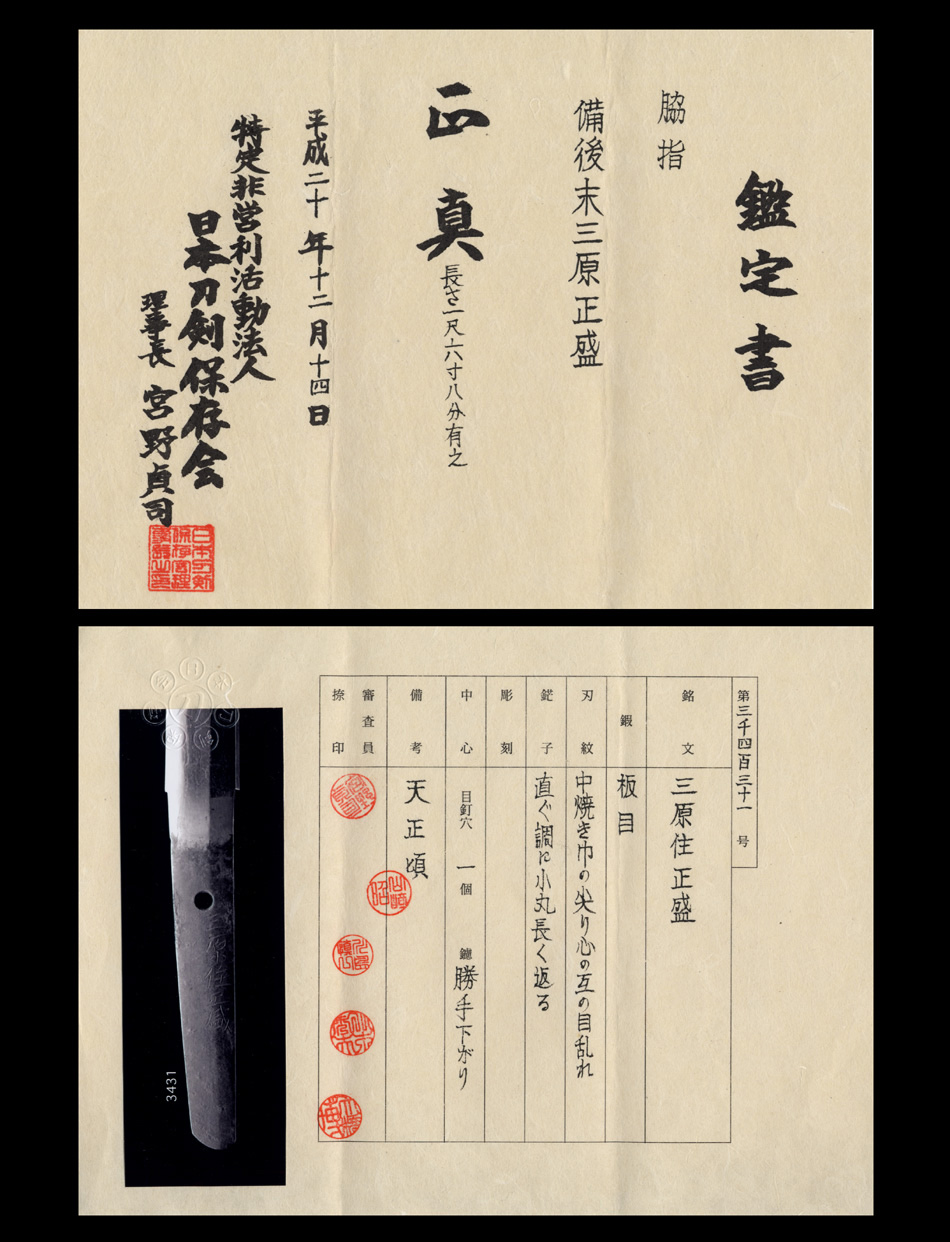 鑑定書
脇指
備後末三原正盛
正真
長さ一尺六寸八分有之
平成二十年十二月十四日
特定非営利活動法人
日本刀剣保存会
理事長 宮野貞司
第三千四百三十一号
銘文 三原住正盛
鍛 板目
刃紋 中焼き巾の尖り心の互の目乱れ
鋩子 直ぐ調に小丸長く返る
彫刻
中心 目釘穴 一個 鑢 勝手下がり
備考 天正頃
審査員
捺印
三原住正盛
3431